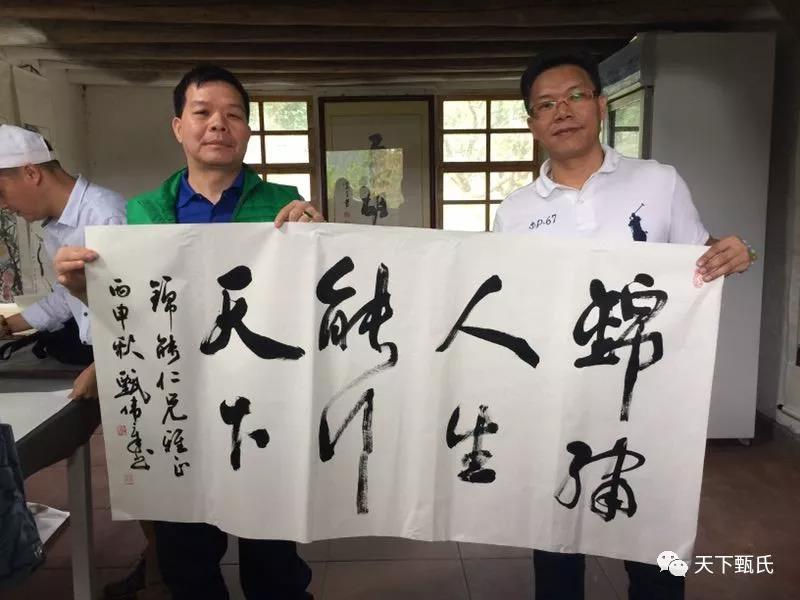 錦繡
人生
能行
天下
錦能仁兄雅正
丙申秋 甄偉 书
P-67
天下甄氏